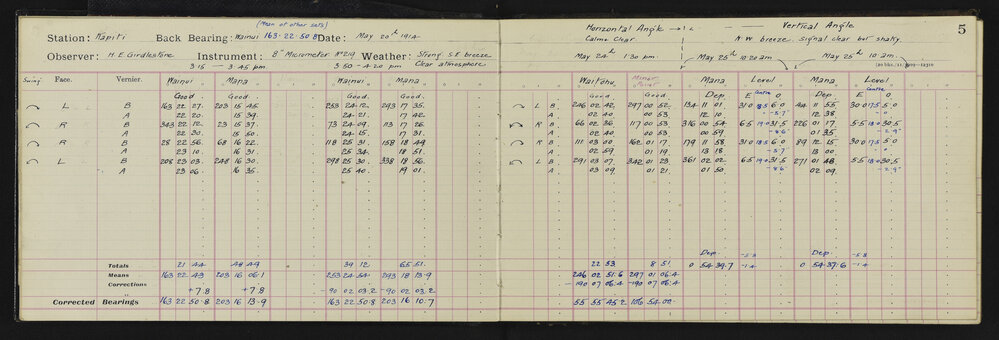 (Mean of other sets)
Station: Kapiti Back Bearing: Wainui 163·22·50·8 Date: May 20th 1914
Observer: H.E. Girdlestone Instrument: 8" Micrometer No 219 Weather: Strong S.E. breeze
3·15 — 3·45 pm 3·50 - 4·20 pm Clear atmosphere
Swing Face. Vernier. Wainui Mana Wainui Mana
Good Good Good Good
L B 163 22 27 203 15 45 253 24·12 293 17 35
A 22 20 15 39 24·21 17 42
R B 343 22 12 23 15 37 73 24·09 113 17 26
A 22 30 15 50 24·15 17 31
R B 28 22 56 68 16 22 118 25 31 158 18 49
A 23 10 16 31 25 34 18 51
L B 208 23 03 248 16 30 298 25 30 338 18 56
A 23 06 16 35 25 40 19 01
Totals 21 44 48 49 39 12 65 51
Means 163 22 43 203 16 06·1 253 24·54 293 18 13·9
Corrections
+7·8 +7·8 -90 02 03·2 -90 02 03·2
Corrected Bearings 163 22 50·8 203 16 13·9 163 22 50·8 203 16 10·7
5
Horizontal Angle Vertical Angle
Calm Clear N·W breeze Signal clear but shaky
May 24th 1·30 pm May 25th 10·20 am May 25th 10 am
Waitohu Mana Level Mana Level
Good Good Dep Centre Dep Centre
E O E O
L B 246 02 42 297 00 52 134 11 01 31·0 18·5 6·0 44 11 55 30·0 17·5 5·0
A 02 40 00 53 12 10 -5·7 12 38
R B 66 02 36 117 00 53 316 00 54 6·5 19·0 31·5 226 01 17 5·5 18·0 30·5
A 02 40 00 53 00 59 -8·6 01 35 -2·9
R B 111 03 40 162 01 17 179 11 58 31·0 18·5 6·0 89 12 15 30·0 17·5 5·0
A 02 59 01 19 13 18 -5·7 13 00
L B 291 03 07 342 01 23 361 02 02 6·5 19·0 31·5 271 01 48 5·5 18·0 30·5
A 03 09 01 21 01 50 -8·6 02 09 -2·9
Dep -5·8 Dep -5·8
22 53 8 51 0 54·39·7 -1·4 0 54·37·6 -1·4
246 02 51·6 297 01 06·4
-190 07 06·4 -190 07 06·4
55 55 45·2 106 54·00